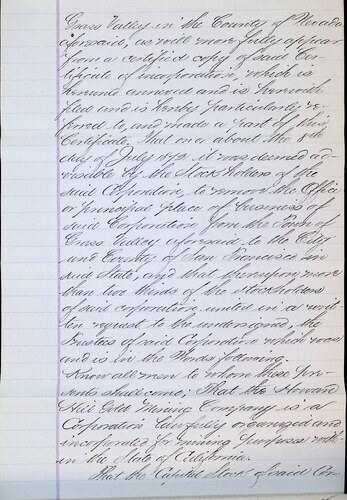 Grass Valley in the County of Nevada
aforesaid, as will more fully appear
from a certified copy of said Cer-
tificate of incorporation, which is
hereunto annexed and is herewith
filed and is hereby particularly re-
ferred to, and made a part of this
Certificate, That on or about the 8th
day of July 1872 it was deemed ad-
visable by the Stockholders of the
said Corporation, to remove the Office
or principal place of business of
said Corporation from the Town of
Grass Valley aforesaid to the City
and County of San Francisco in
said State, and that thereupon more
than two thirds of the Stockholders
of said corporation united in a writ-
ten request to the undersigned, the
Trustees of said Corporation which was
and is in the Words following.
Know all men to whom these pre-
sents shall come; That the Howard
Hill Gold Mining Company is a
Corporation lawfully organized and
incorporated for mining purposes with-
in the State of California.
That the Capital Stock of said Cor-